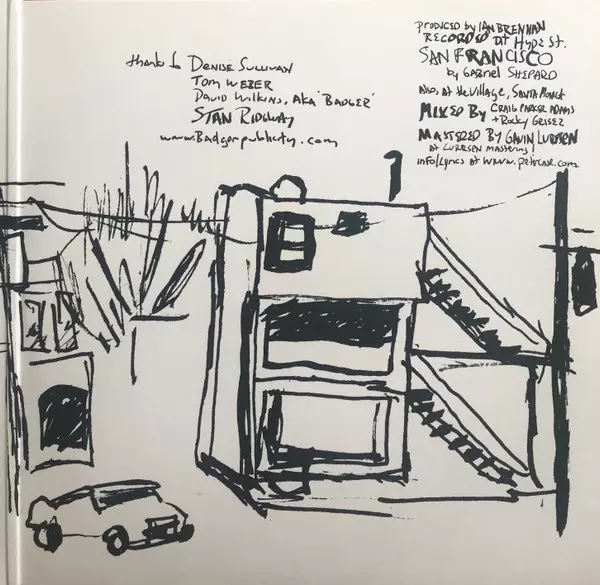 thanks to Denise Sullivan
Tom Weber
David Wilkins, AKA 'Badger'
Stan Ridgway
www.Badgerpublicity.com
produced by Ian Brennan
Recorded at Hyde St.
San Francisco
by Gabriel Shepard
Also, at the Village, Santa Monica
Mixed By Craig Parker Adams
+ Rocky Grisez
Mastered By Gavin Lurssen
at Lurssen Mastering
info/Lyrics at www.petercase.com